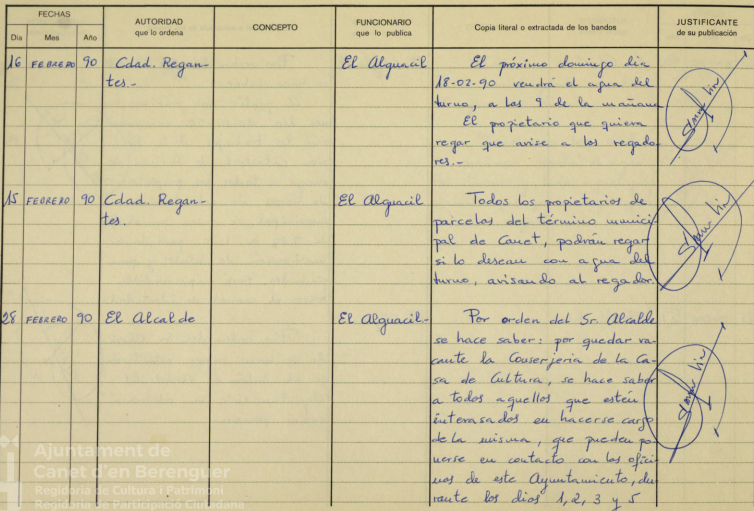 FECHAS
Dia Mes Año
AUTORIDAD
que lo ordena
CONCEPTO
FUNCIONARIO
que lo publica
Copia literal o extractada de los bandos
JUSTIFICANTE
de su publicación
16 FEBRERO 90 Cdad. Regan- El Alguacil El próximo domingo dia
tes.- 18-02-90 vendrá el agua del
turno, a las 9 de la mañana
El propietario que quiera
regar que avise a los regado
res.-
15 FEBRERO 90 Cdad. Regan- El Alguacil Todos los propietarios de
tes. parcelas del término munici
pal de Canet, podrán regar
si lo desean con agua del
turno, avisando al regador.
28 FEBRERO 90 El Alcalde El Alguacil- Por orden del Sr. Alcalde
se hace saber: por quedar va
cante la Conserjeria de la Ca-
sa de Cultura, se hace saber
a todos aquellos que estén
interasados en hacerse cargo
de la misma, que pueden po
nerse en contacto con las ofici
nas de este Ayuntamiento, du
rante los dias 1, 2, 3 y 5
Ajuntament de
Canet d'en Berenguer
Regidoria de Cultura i Patrimoni
Regidoria de Participació Ciutadana